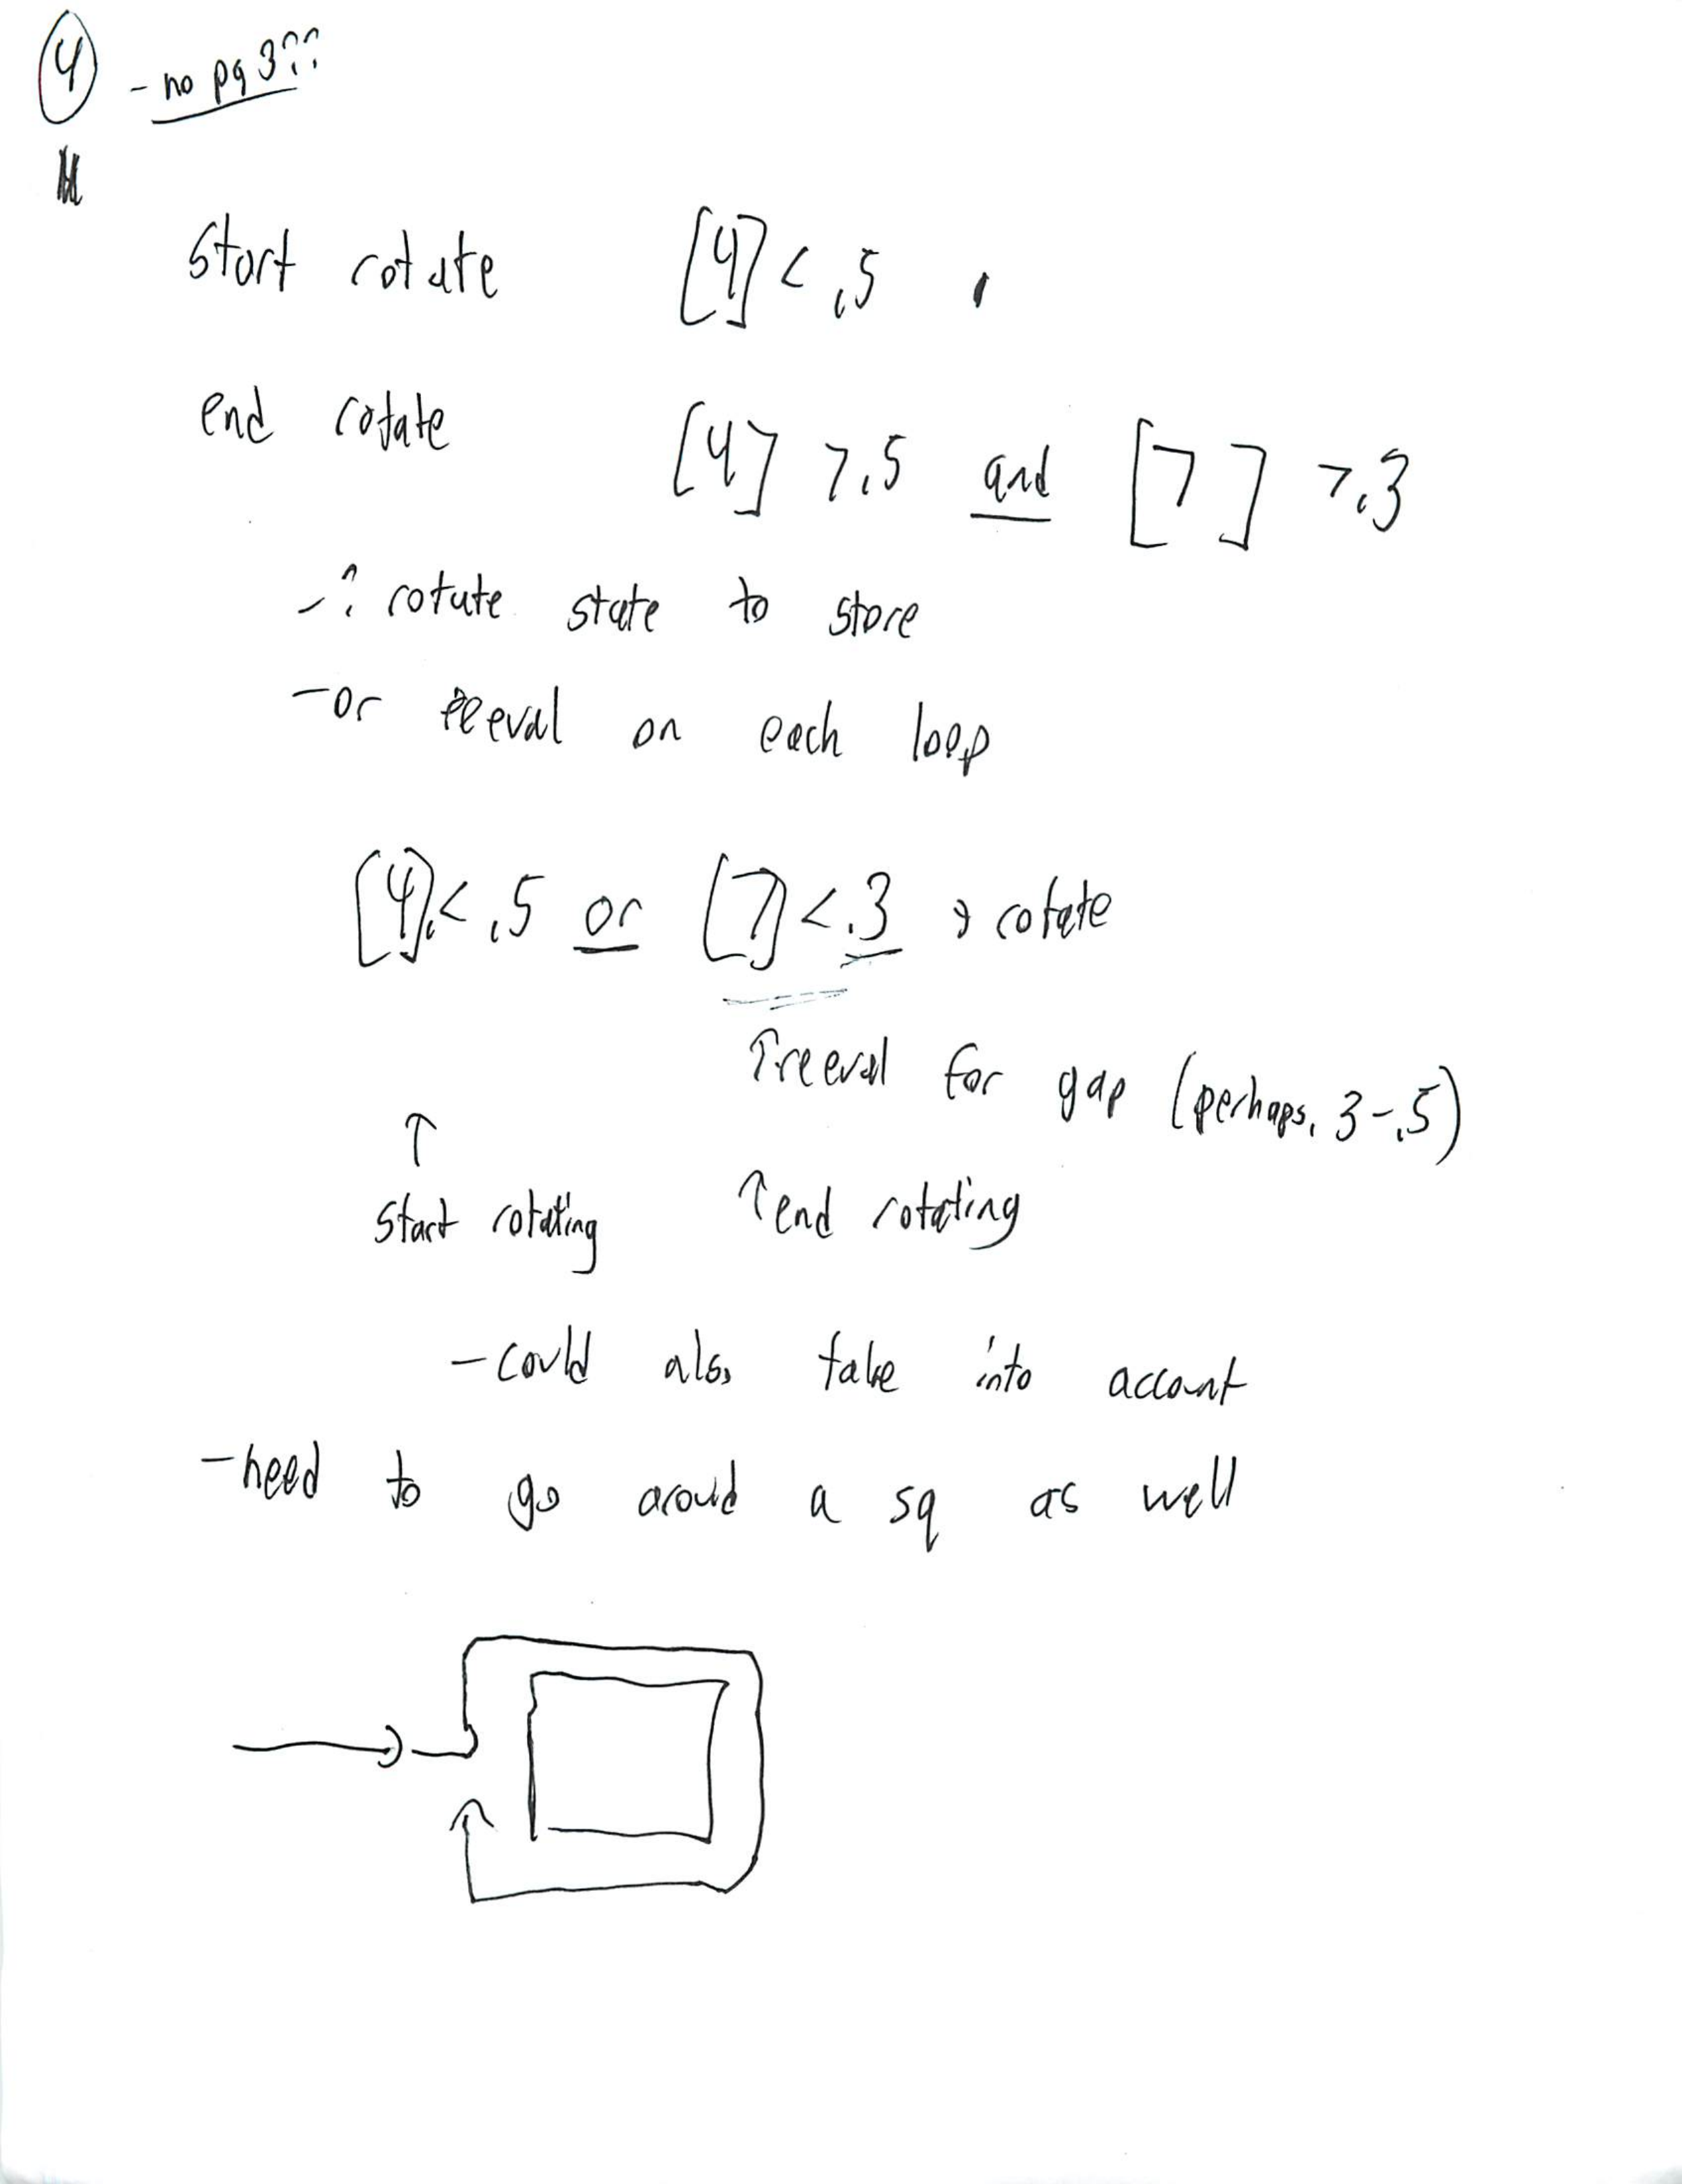 4 - no pg 3??
start rotate [4] < .5
end rotate [4] > .5 and [7] > .3
∴ rotate state to store
- or reeval on each loop
[4] < .5 or [7] < .3 → rotate
↑ reeval for gap (perhaps .3-.5)
↑
start rotating ↑ end rotating
- could also take into account
- need to go around a sq as well